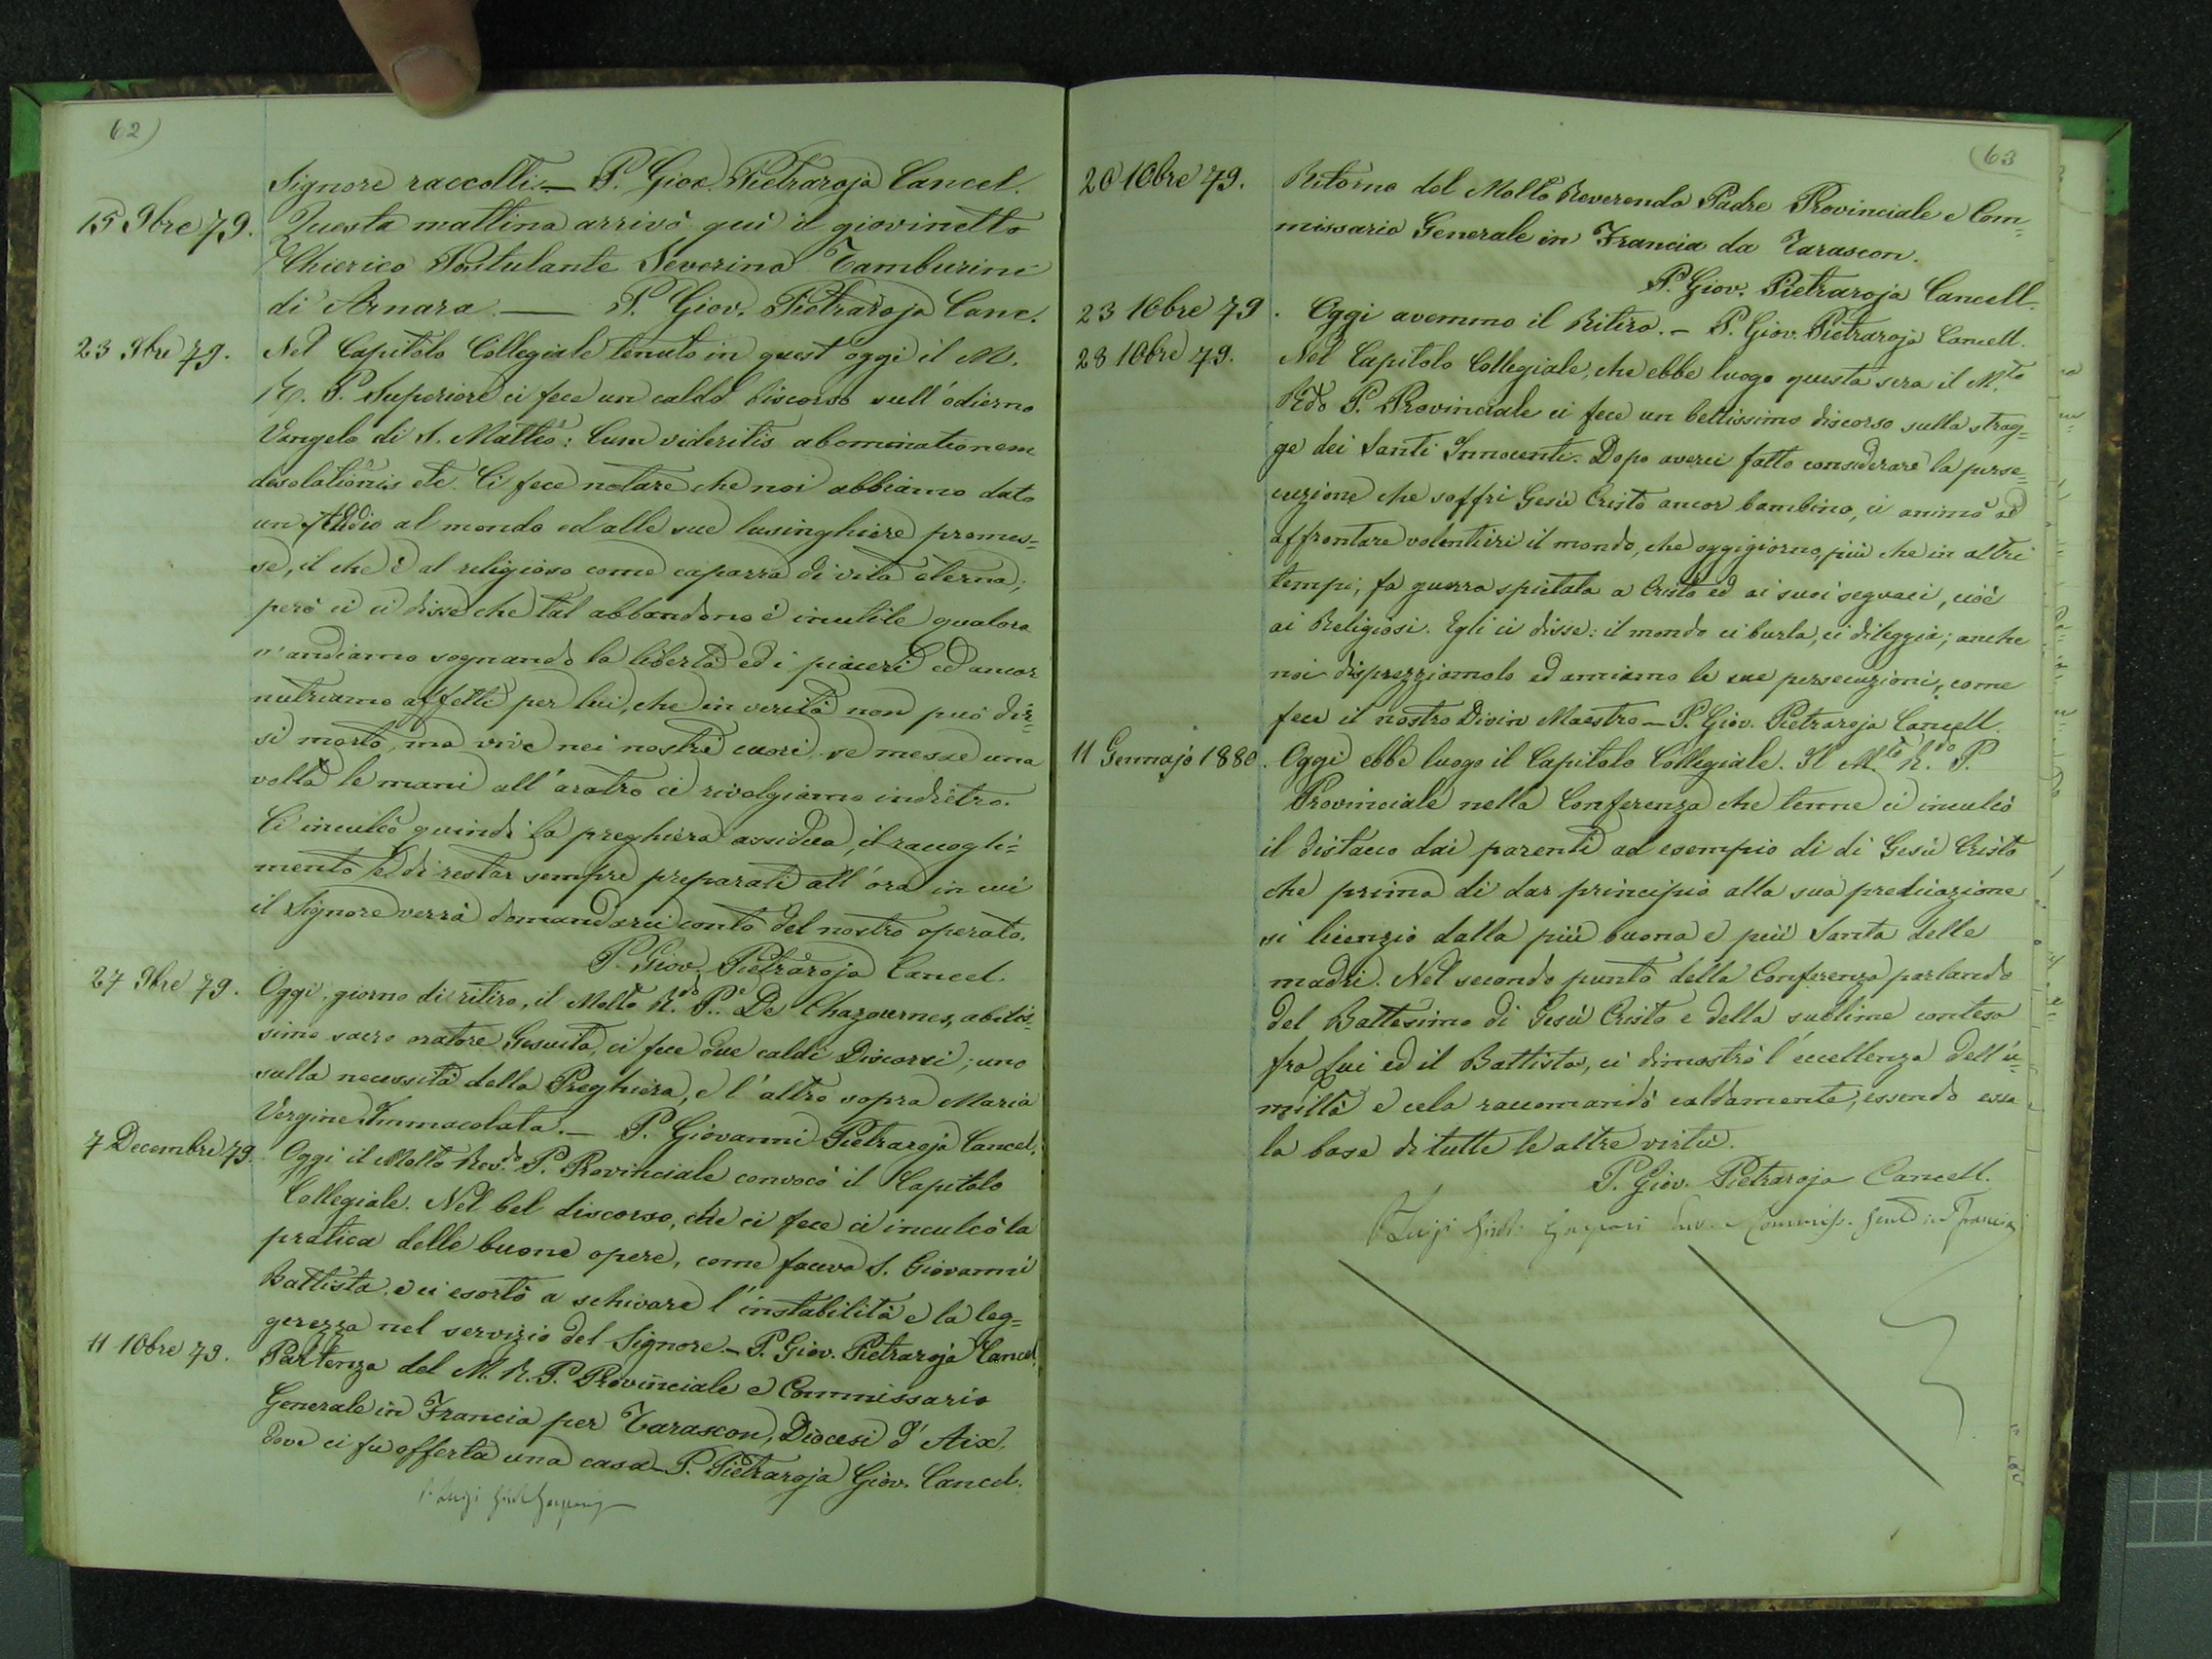 62)
Signore raccolti. — P. Giov. Pietraroja Cancel.
15 9bre 79. Questa mattina arrivò qui il giovinetto
Chierico Postulante Severino Tamburini
di Arnara. — P. Giov. Pietraroja Canc.
23 9bre 79. Nel Capitolo Collegiale tenuto in quest'oggi il M.
R. P. Superiore ci fece un caldo discorso sull'odierno
Vangelo di S. Matteo: Cum videritis abominationem
desolationis etc. Ci fece notare che noi abbiamo dato
un addio al mondo ed alle sue lusinghiere promes=
se, il che è al religioso come caparra di vita eterna;
però ci ci disse che tal abbandono è inutile qualora
n'andiamo sognando la libertà ed i piaceri ed ancor
nutriamo affetti per lui, che in verità non può dir=
si morto, ma vive nei nostri cuori se messe una
volta le mani all'aratro ci rivolgiamo indietro.
Ci inculcò quindi la preghiera assidua, il raccogli=
mento e di restar sempre preparati all'ora in cui
il Signore verrà domandarci conto del nostro operato.
P. Giov. Pietraroja Cancel.
27 9bre 79. Oggi, giorno di ritiro, il Molto R.do P.e De Chazournes, abilis=
simo sacro oratore Gesuita, ci fece due caldi Discorsi; uno
sulla necessità della Preghiera, e l'altro sopra Maria
Vergine Immacolata. — P. Giovanni Pietraroja Cancel.
7 Decembre 79. Oggi il Molto Rev.do P. Provinciale convocò il Capitolo
Collegiale. Nel bel discorso, che ci fece ci inculcò la
pratica delle buone opere, come faceva S. Giovanni
Battista, e ci esortò a schivare l'instabilità e la leg=
gerezza nel servizio del Signore. — P. Giov. Pietraroja Cancel.
11 10bre 79. Partenza del M. R. P. Provinciale e Commissario
Generale in Francia per Tarascon, Diocesi d'Aix,
dove ci fu offerta una casa — P. Pietraroja Giov. Cancel.
P. Luigi
(63
20 10bre 79. Ritorno del Molto Reverendo Padre Provinciale e Com=
missario Generale in Francia da Tarascon.
P. Giov. Pietraroja Cancell.
23 10bre 79. Oggi avemmo il Ritiro. — P. Giov. Pietraroja Cancell.
28 10bre 79. Nel Capitolo Collegiale, che ebbe luogo questa sera il M.to
Rdo P. Provinciale ci fece un bellissimo discorso sulla strag=
ge dei Santi Innocenti. Dopo averci fatto considerare la perse=
cuzione che soffrì Gesù Cristo ancor bambino, ci animò ad
affrontare volentieri il mondo, che oggigiorno, più che in altri
tempi, fa guerra spietata a Cristo ed ai suoi seguaci, cioè
ai Religiosi. Egli ci disse: il mondo ci burla, ci dileggia; anche
noi disprezziamolo ed amiamo le sue persecuzioni, come
fece il nostro Divin Maestro — P. Giov. Pietraroja Cancell.
11 Gennajo 1880. Oggi ebbe luogo il Capitolo Collegiale. Il M.to R.do P.
Provinciale nella Conferenza che tenne ci inculcò
il distacco dai parenti ad esempio di di Gesù Cristo
che prima di dar principio alla sua predicazione
si licenziò dalla più buona e più Santa delle
madri. Nel secondo punto della Conferenza parlando
del Battesimo di Gesù Cristo e della sublime contesa
fra Lui ed il Battista, ci dimostrò l'eccellenza dell'u=
miltà e cela raccomandò caldamente, essendo essa
la base di tutte le altre virtù.
P. Giov. Pietraroja Cancell.
P. Luigi Commiss. Gen. in Francia